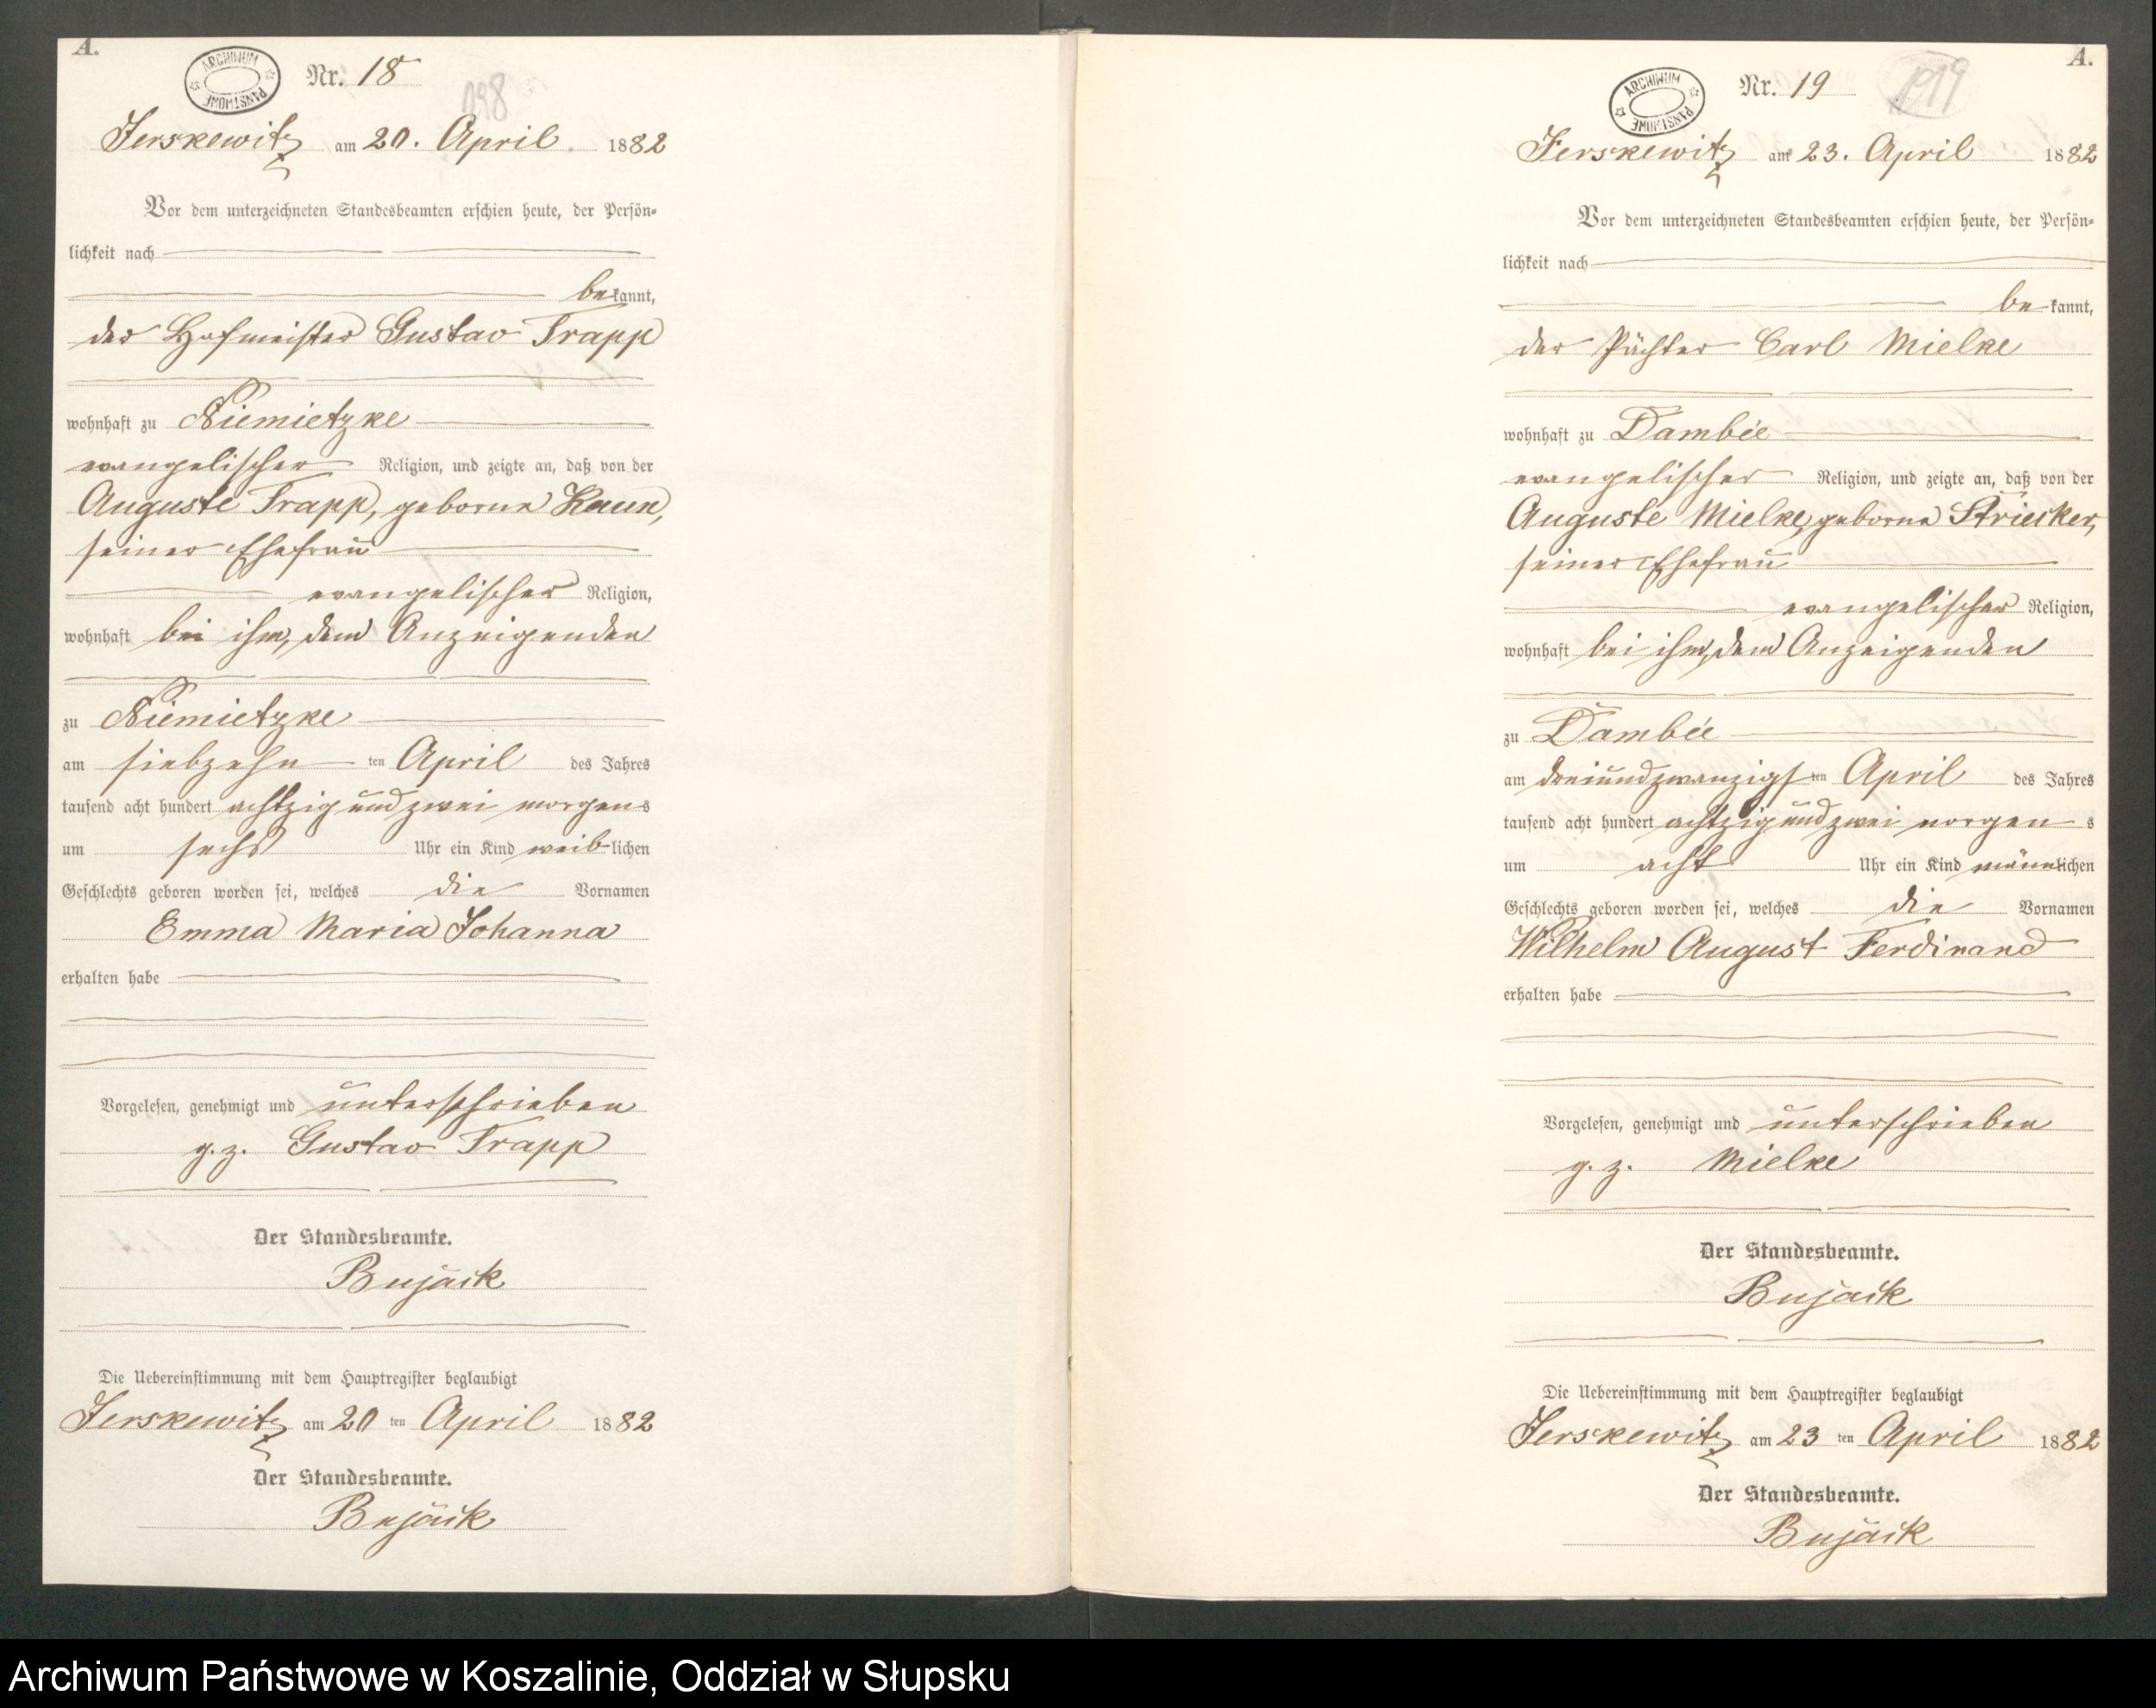 A.
ARCHIWUM PAŃSTWOWE
Nr. 18
198
Jerskewitz am 20. April 1882
Vor dem unterzeichneten Standesbeamten erschien heute, der Persön-
lichkeit nach
bekannt,
der Hofmeister Gustav Trapp
wohnhaft zu Niemietzke
evangelischer Religion, und zeigte an, daß von der
Auguste Trapp, geborne Kaun,
seiner Ehefrau
evangelischer Religion,
wohnhaft bei ihm, dem Anzeigenden
zu Niemietzke
am siebzehn ten April des Jahres
tausend acht hundert achtzig und zwei morgens
um sechs Uhr ein Kind weiblichen
Geschlechts geboren worden sei, welches die Vornamen
Emma Maria Johanna
erhalten habe
Vorgelesen, genehmigt und unterschrieben
g. z. Gustav Trapp
Der Standesbeamte.
Bujack
Die Uebereinstimmung mit dem Hauptregister beglaubigt
Jerskewitz am 20 ten April 1882
Der Standesbeamte.
Bujack
A.
ARCHIWUM PAŃSTWOWE
Nr. 19
Jerskewitz am 23. April 1882
Vor dem unterzeichneten Standesbeamten erschien heute, der Persön-
lichkeit nach
bekannt,
der Pächter Carl Mielke
wohnhaft zu Dambée
evangelischer Religion, und zeigte an, daß von der
Auguste Mielke, geborne Striecker,
seiner Ehefrau
evangelischer Religion,
wohnhaft bei ihm, dem Anzeigenden
zu Dambée
am dreiundzwanzigsten April des Jahres
tausend acht hundert achtzig und zwei morgens
um acht Uhr ein Kind männlichen
Geschlechts geboren worden sei, welches die Vornamen
Wilhelm August Ferdinand
erhalten habe
Vorgelesen, genehmigt und unterschrieben
g. z. Mielke
Der Standesbeamte.
Bujack
Die Uebereinstimmung mit dem Hauptregister beglaubigt
Jerskewitz am 23 ten April 1882
Der Standesbeamte.
Bujack
Archiwum Państwowe w Koszalinie, Oddział w Słupsku